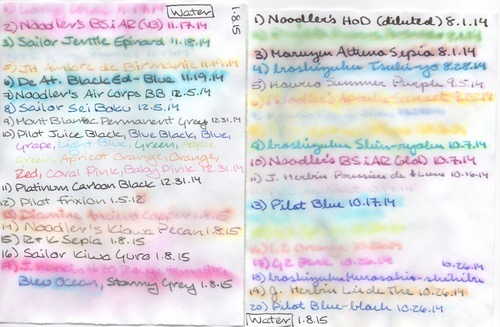 Water
2) Noodler's BSiAR (V3) 11.17.14
3) Sailor Jentle Epinard 11.18.14
5) JH Ambre de Birmanie 11.19.14
6) De At. Black Ed- Blue 11.19.14
7) Noodler's Air Corps BB 12.5.14
8) Sailor Sei Boku 12.5.14
9) Mont Blanc Permanent Grey 12.31.14
10) Pilot Juice Black, Blue Black, Blue,
Grape, Light Blue, Green, Apple
Green, Apricot Orange, Orange,
Red, Coral Pink, Baby Pink 12.31.14
11) Platinum Carbon Black 12.31.14
12) Pilot Frixion 1.5.12
13) Diamine Ancient Copper 1.8.15
14) Noodler's Kiowa Pecan 1.8.15
15) R+K Sepia 1.8.15
16) Sailor Kiwa Guro 1.8.15
J. Herbin 1670 Rouge Hematite
Bleu Ocean, Stormy Grey 1.8.15
1.8.15
1) Noodler's HoD (diluted) 8.1.14
3) Maruzen Athena Sepia 8.1.14
4) Iroshizuku Tsuki-yo 8.28.14
5) Haurco Summer Purple 9.5.14
6) Noodler's Apache Sunset 9.25.14
9) Iroshizuku Shin-ryoku 10.7.14
10) Noodler's BSiAR (old) 10.7.14
11) J. Herbin Poussière de Lune 10.16.14
13) Pilot Blue 10.17.14
16) G2 Orange
17) G2 Pink 10.26.14
18) Iroshizuku Murasaki-shikibu 10.26.14
19) J. Herbin Lie de The 10.26.14
20) Pilot Blue-black 10.26.14
Water 1.8.15